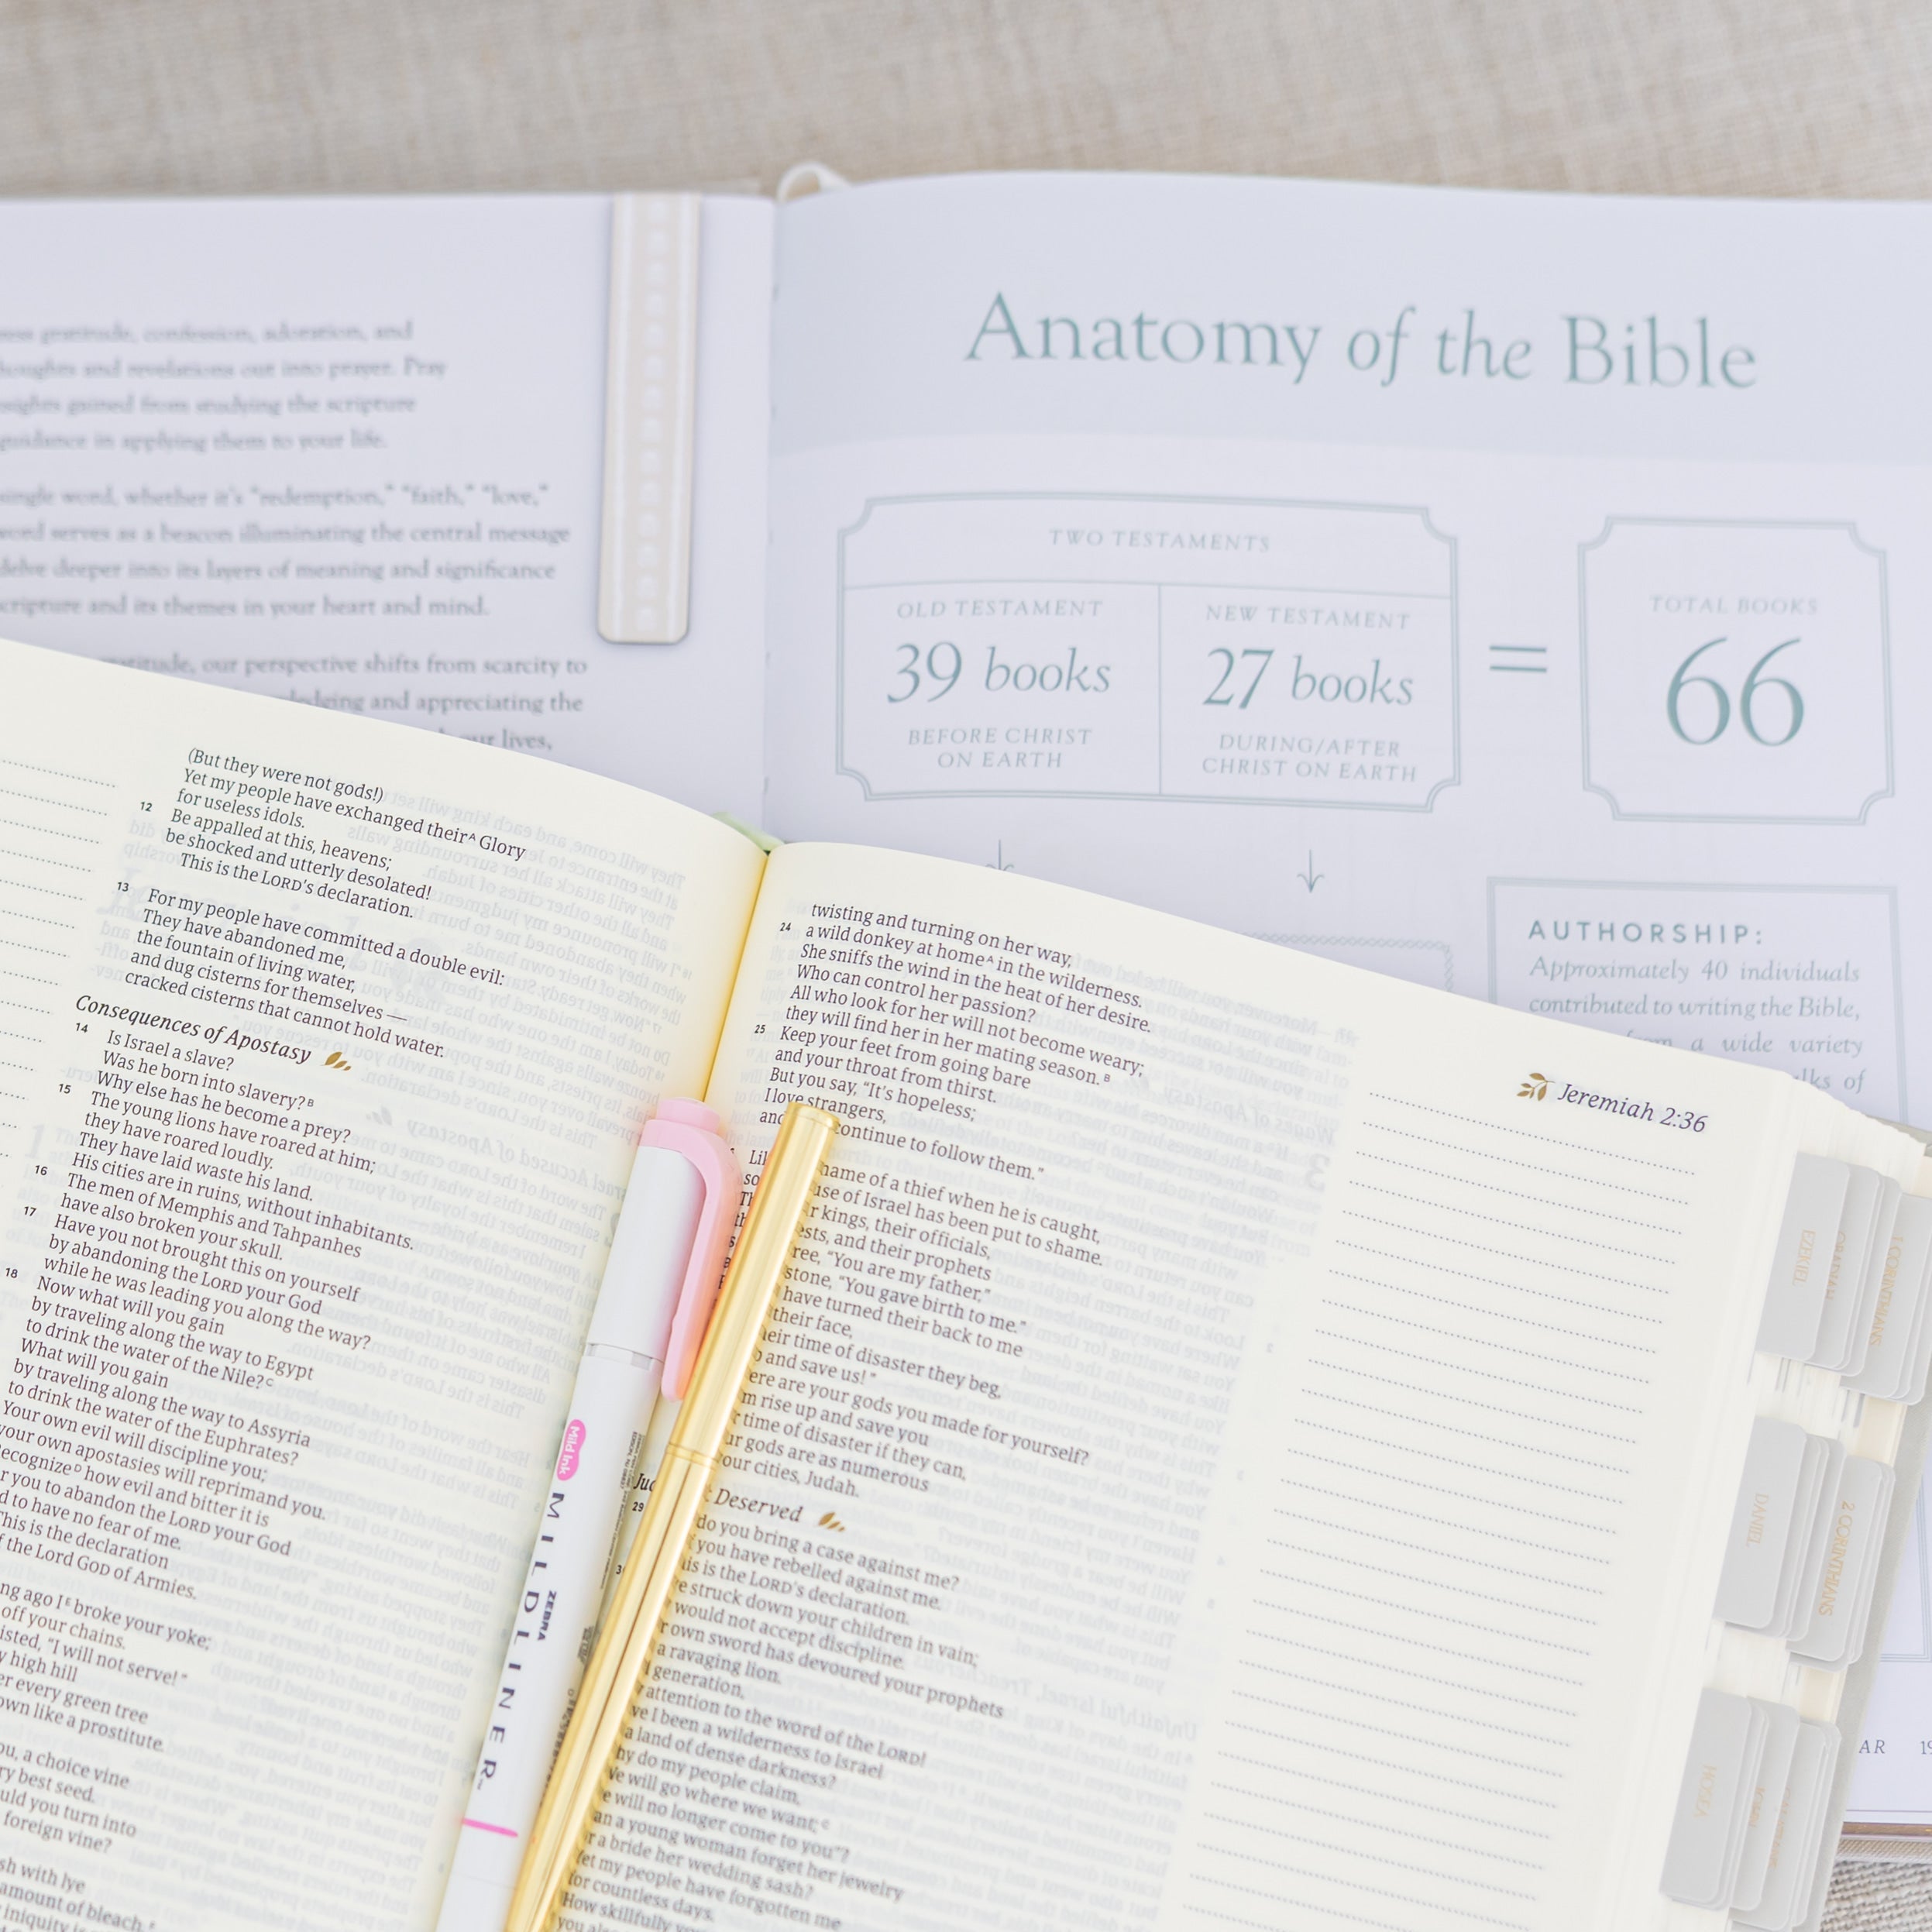 gratitude, confession, adoration, and
thoughts and revelations out into prayer. Pray
gained from studying the scripture
guidance in applying them to your life.
single word, whether it's "redemption," "faith," "love,"
word serves as a beacon illuminating the central message
delve deeper into its layers of meaning and significance
scripture and its themes in your heart and mind.
our perspective shifts from scarcity to
and appreciating the
our lives,
Anatomy of the Bible
TWO TESTAMENTS
OLD TESTAMENT
39 books
BEFORE CHRIST
ON EARTH
NEW TESTAMENT
27 books
DURING/AFTER
CHRIST ON EARTH
=
TOTAL BOOKS
66
AUTHORSHIP:
Approximately 40 individuals
contributed to writing the Bible,
a wide variety
of
(But they were not gods!)
Yet my people have exchanged their^A Glory
for useless idols.
12 Be appalled at this, heavens;
be shocked and utterly desolated!
This is the LORD's declaration.
13 For my people have committed a double evil:
They have abandoned me,
the fountain of living water,
and dug cisterns for themselves —
cracked cisterns that cannot hold water.
Consequences of Apostasy
14 Is Israel a slave?
Was he born into slavery?^B
Why else has he become a prey?
15 The young lions have roared at him;
they have roared loudly.
They have laid waste his land.
His cities are in ruins, without inhabitants.
16 The men of Memphis and Tahpanhes
have also broken your skull.
17 Have you not brought this on yourself
by abandoning the LORD your God
while he was leading you along the way?
18 Now what will you gain
by traveling along the way to Egypt
to drink the water of the Nile?^C
What will you gain
by traveling along the way to Assyria
to drink the water of the Euphrates?
Your own evil will discipline you;
your own apostasies will reprimand you.
recognize^D how evil and bitter it is
you to abandon the LORD your God
to have no fear of me.
This is the declaration
of the Lord GOD of Armies.
ago I^E broke your yoke;
off your chains.
"I will not serve!"
high hill
every green tree
like a prostitute.
a choice vine
best seed.
you turn into
foreign vine?
with lye
amount of bleach,
iniquity is
twisting and turning on her way,
24 a wild donkey at home^A in the wilderness.
She sniffs the wind in the heat of her desire.
Who can control her passion?
All who look for her will not become weary;
they will find her in her mating season.^B
25 Keep your feet from going bare
and your throat from thirst.
But you say, "It's hopeless;
I love strangers,
and continue to follow them."
of a thief when he is caught,
of Israel has been put to shame.
kings, their officials,
and their prophets
"You are my father,"
stone, "You gave birth to me."
have turned their back to me
their face,
time of disaster they beg,
and save us!"
are your gods you made for yourself?
rise up and save you
time of disaster if they can,
gods are as numerous
your cities, Judah.
29
Deserved
do you bring a case against me?
you have rebelled against me.
is the LORD's declaration.
struck down your children in vain;
would not accept discipline.
own sword has devoured your prophets
a ravaging lion.
generation,
attention to the word of the LORD!
I been a wilderness to Israel
a land of dense darkness?
do my people claim,
We will go where we want;^C
will no longer come to you"?
a young woman forget her jewelry
a bride her wedding sash?
Yet my people have forgotten me
for countless days.
How skillfully
Jeremiah 2:36
Mild Ink
ZEBRA
MILDLINER
EZEKIEL
1 CORINTHIANS
DANIEL
2 CORINTHIANS
HOSEA